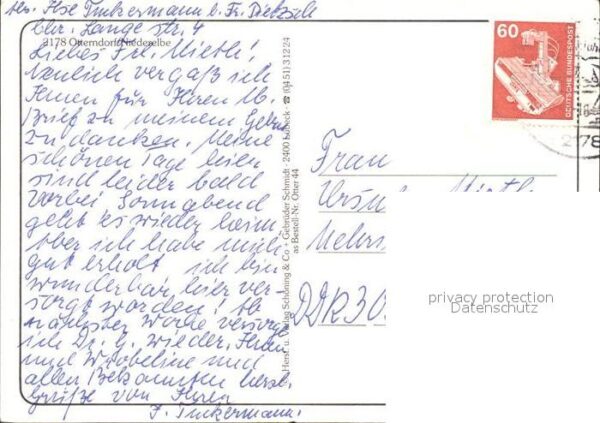 Abs. Ilse Tinkermann b. Fr. Dietzsch
Chr. Lange str. 4
2178 Otterndorf/Niederelbe
Liebes Frl. Mieth!
Neulich vergaß ich
Ihnen für Ihren lb.
Brief zu meinem Geburt
zu danken. Meine
schönen Tage hier
sind leider bald
vorbei. Sonnabend
geht es wieder heim,
Aber ich habe mich
gut erholt ich bin
wunderbar hier ver-
sorgt worden! Ab
nächster Woche versorge
ich Dr. G. wieder. Ihnen
und und
allen Bekannten herzl.
Grüße von Ihrer
I. Tinkermann.
Herst. u. Verlag Schöning & Co + Gebrüder Schmidt · 2400 Lübeck · ☎ (0451) 31224
as Bestell-Nr. Otter 44
60
DEUTSCHE BUNDESPOST
2178
Frau
DDR 30
privacy protection
Datenschutz